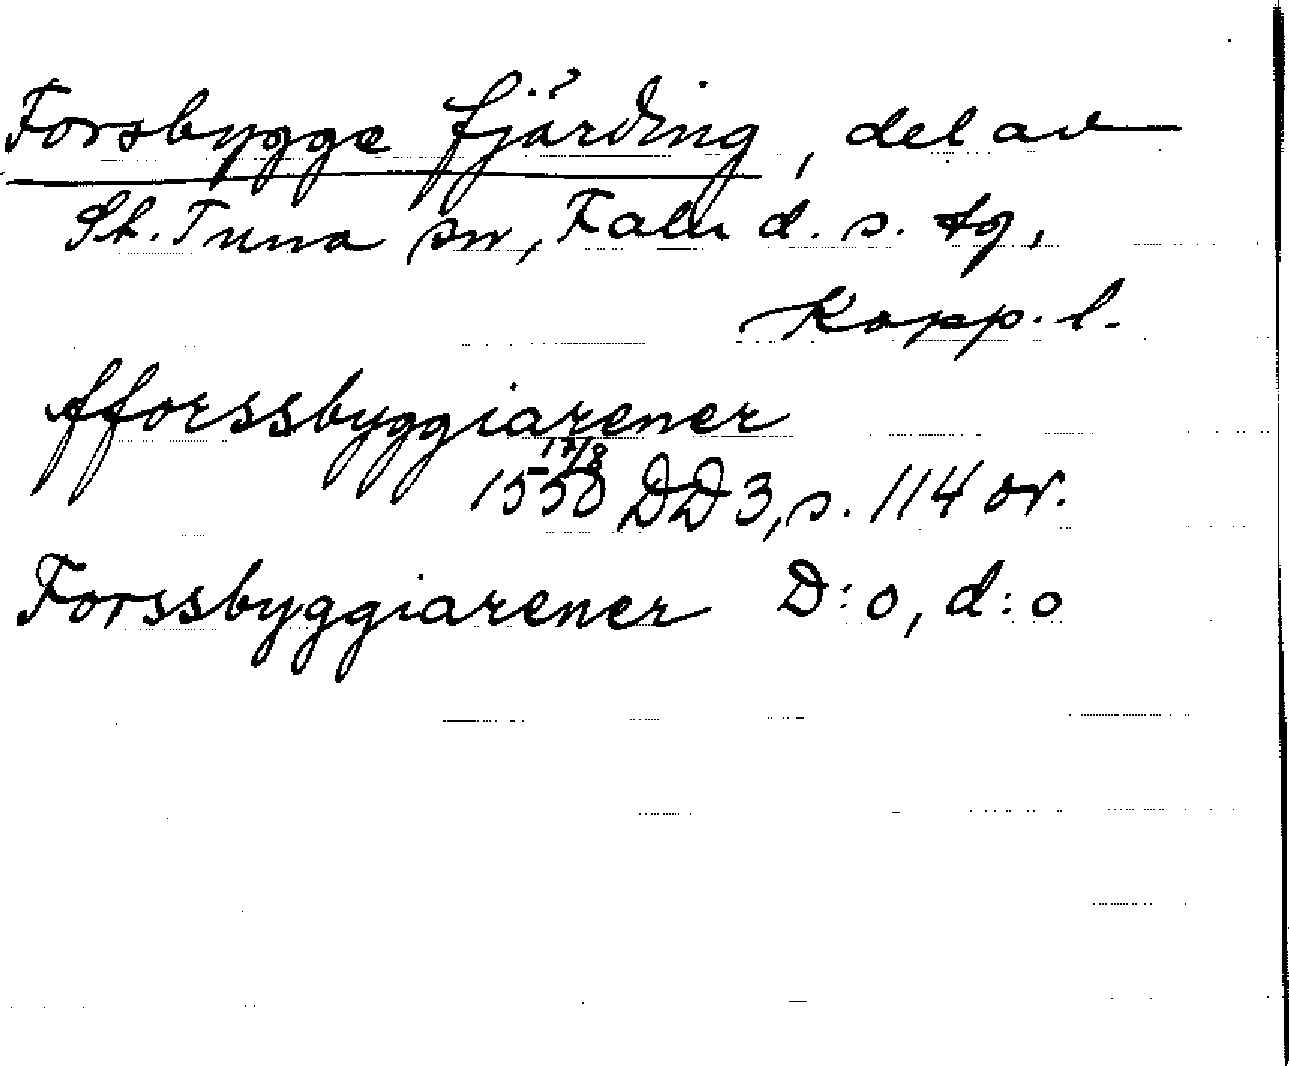 Forsbygge fjärding, del av
St. Tuna sn, Falu d. s. tg,
Kopp. l.
fforssbyggiarener
1550 17/8 DD 3, s. 114 or.
Forssbyggiarener D:o, d:o